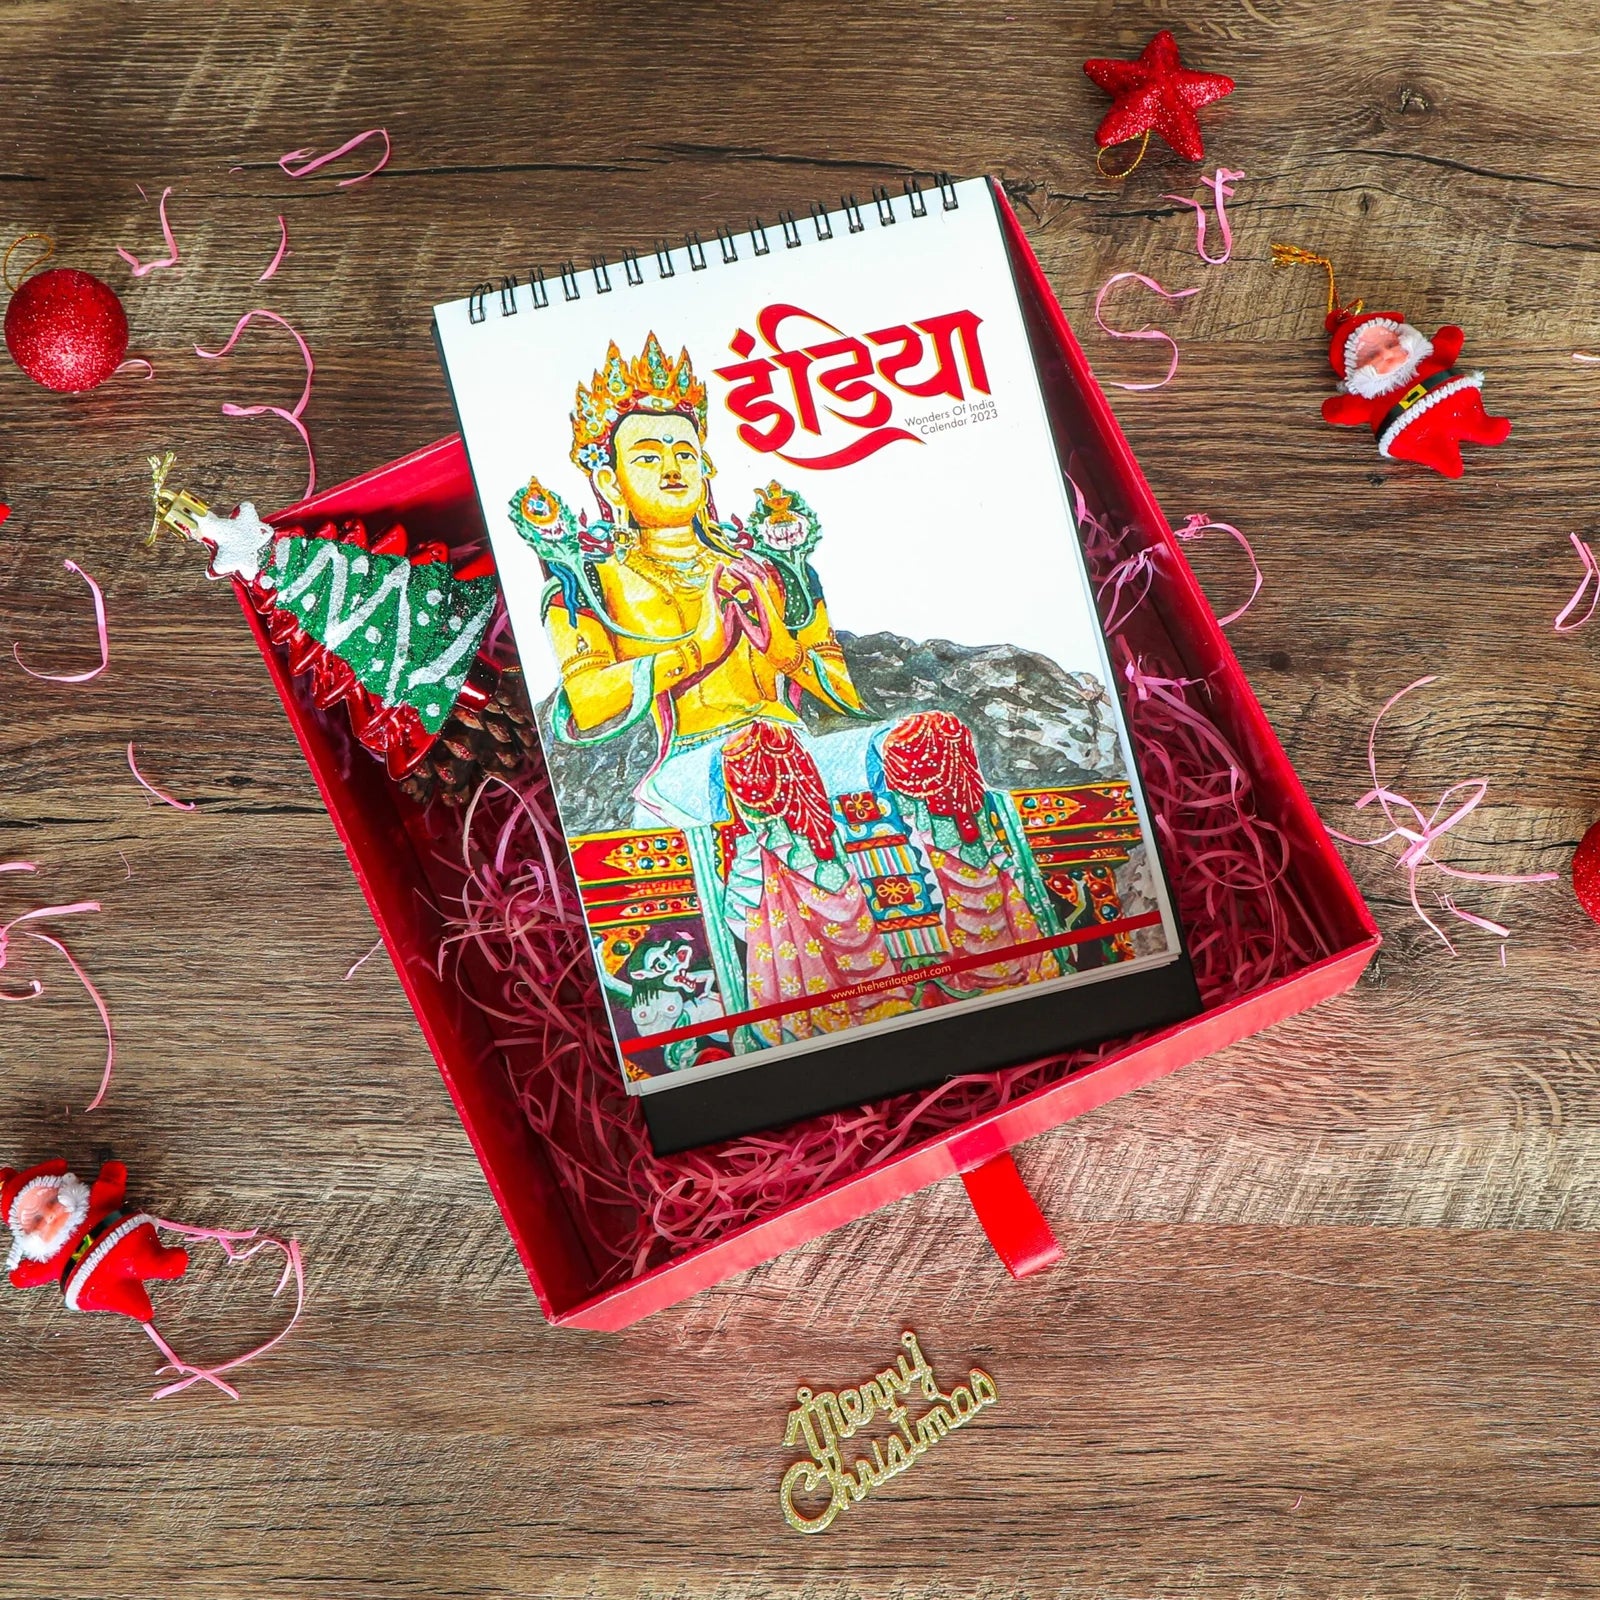 इंडिया
Wonders Of India
Calendar 2023
www.theheritageart.com
Merry
Christmas